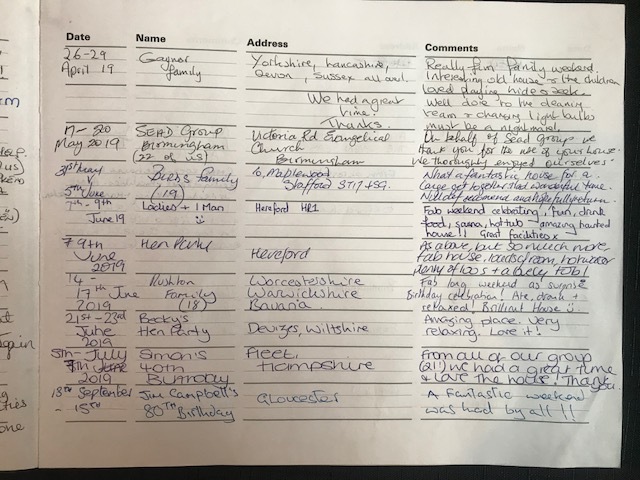 Date Name Address Comments
26-29 Gaynor Yorkshire, Lancashire, Really fun family weekend.
April 19 family Devon, Sussex all over. Interesting old house & the children
loved playing hide & seek
We had a great Well done to the cleaning
time. team & changing light bulbs
Thanks. must be a nightmare!
17-20 SEAD Group Victoria Rd Evangelical On behalf of Sead Group we
May 2019 Birmingham Church thank you for the use of your house.
(22 of us) Birmingham We thoroughly enjoyed ourselves
31st May Family 6, Maplewood What a fantastic house for a
(19) Stafford ST17 large get together. Had wonderful time.
5th June Will def recommend and hopefully return.
7th-9th Ladies + 1 Man Hereford HR1 Fab weekend celebrating, fun, drink
June 19 food, sauna, hot tub - amazing haunted
house!! Great facilities
7 9th Hen Party Hereford As above, but so much more
June Fab house, loads of room, hot water
2019 plenty of loos + a lovely Fab!
14 Rushton Worcestershire Fab long weekend as surprise
17th June Family Warwickshire Birthday celebration! Ate, drank +
2019 (18) Bavaria relaxed! Brilliant House
21st-23rd Becky's Amazing place. Very
June Hen Party Devizes, Wiltshire relaxing. Love it!
2019
5th - July Simon's Fleet, From all of our group
7th June 40th Hampshire (21!) we had a great time
2019 Birthday & love the house! Thank you.
13th September Jim Campbell's Gloucester A Fantastic weekend
- 15th 80th Birthday was had by all !!